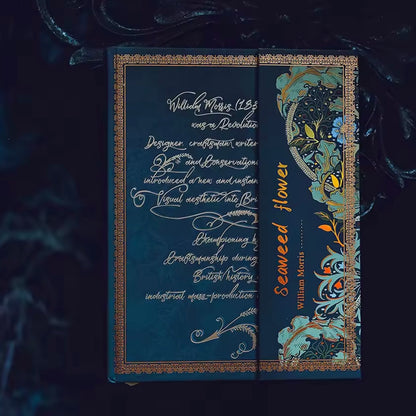 William Morris (183
was a Revolution
Designer craftsman writer
and Conservation
introduced a new and instan
Visual aesthetic into Bri
Championing h
Craftsmanship during
British history
industrial mass-production
Seaweed flower
William Morris